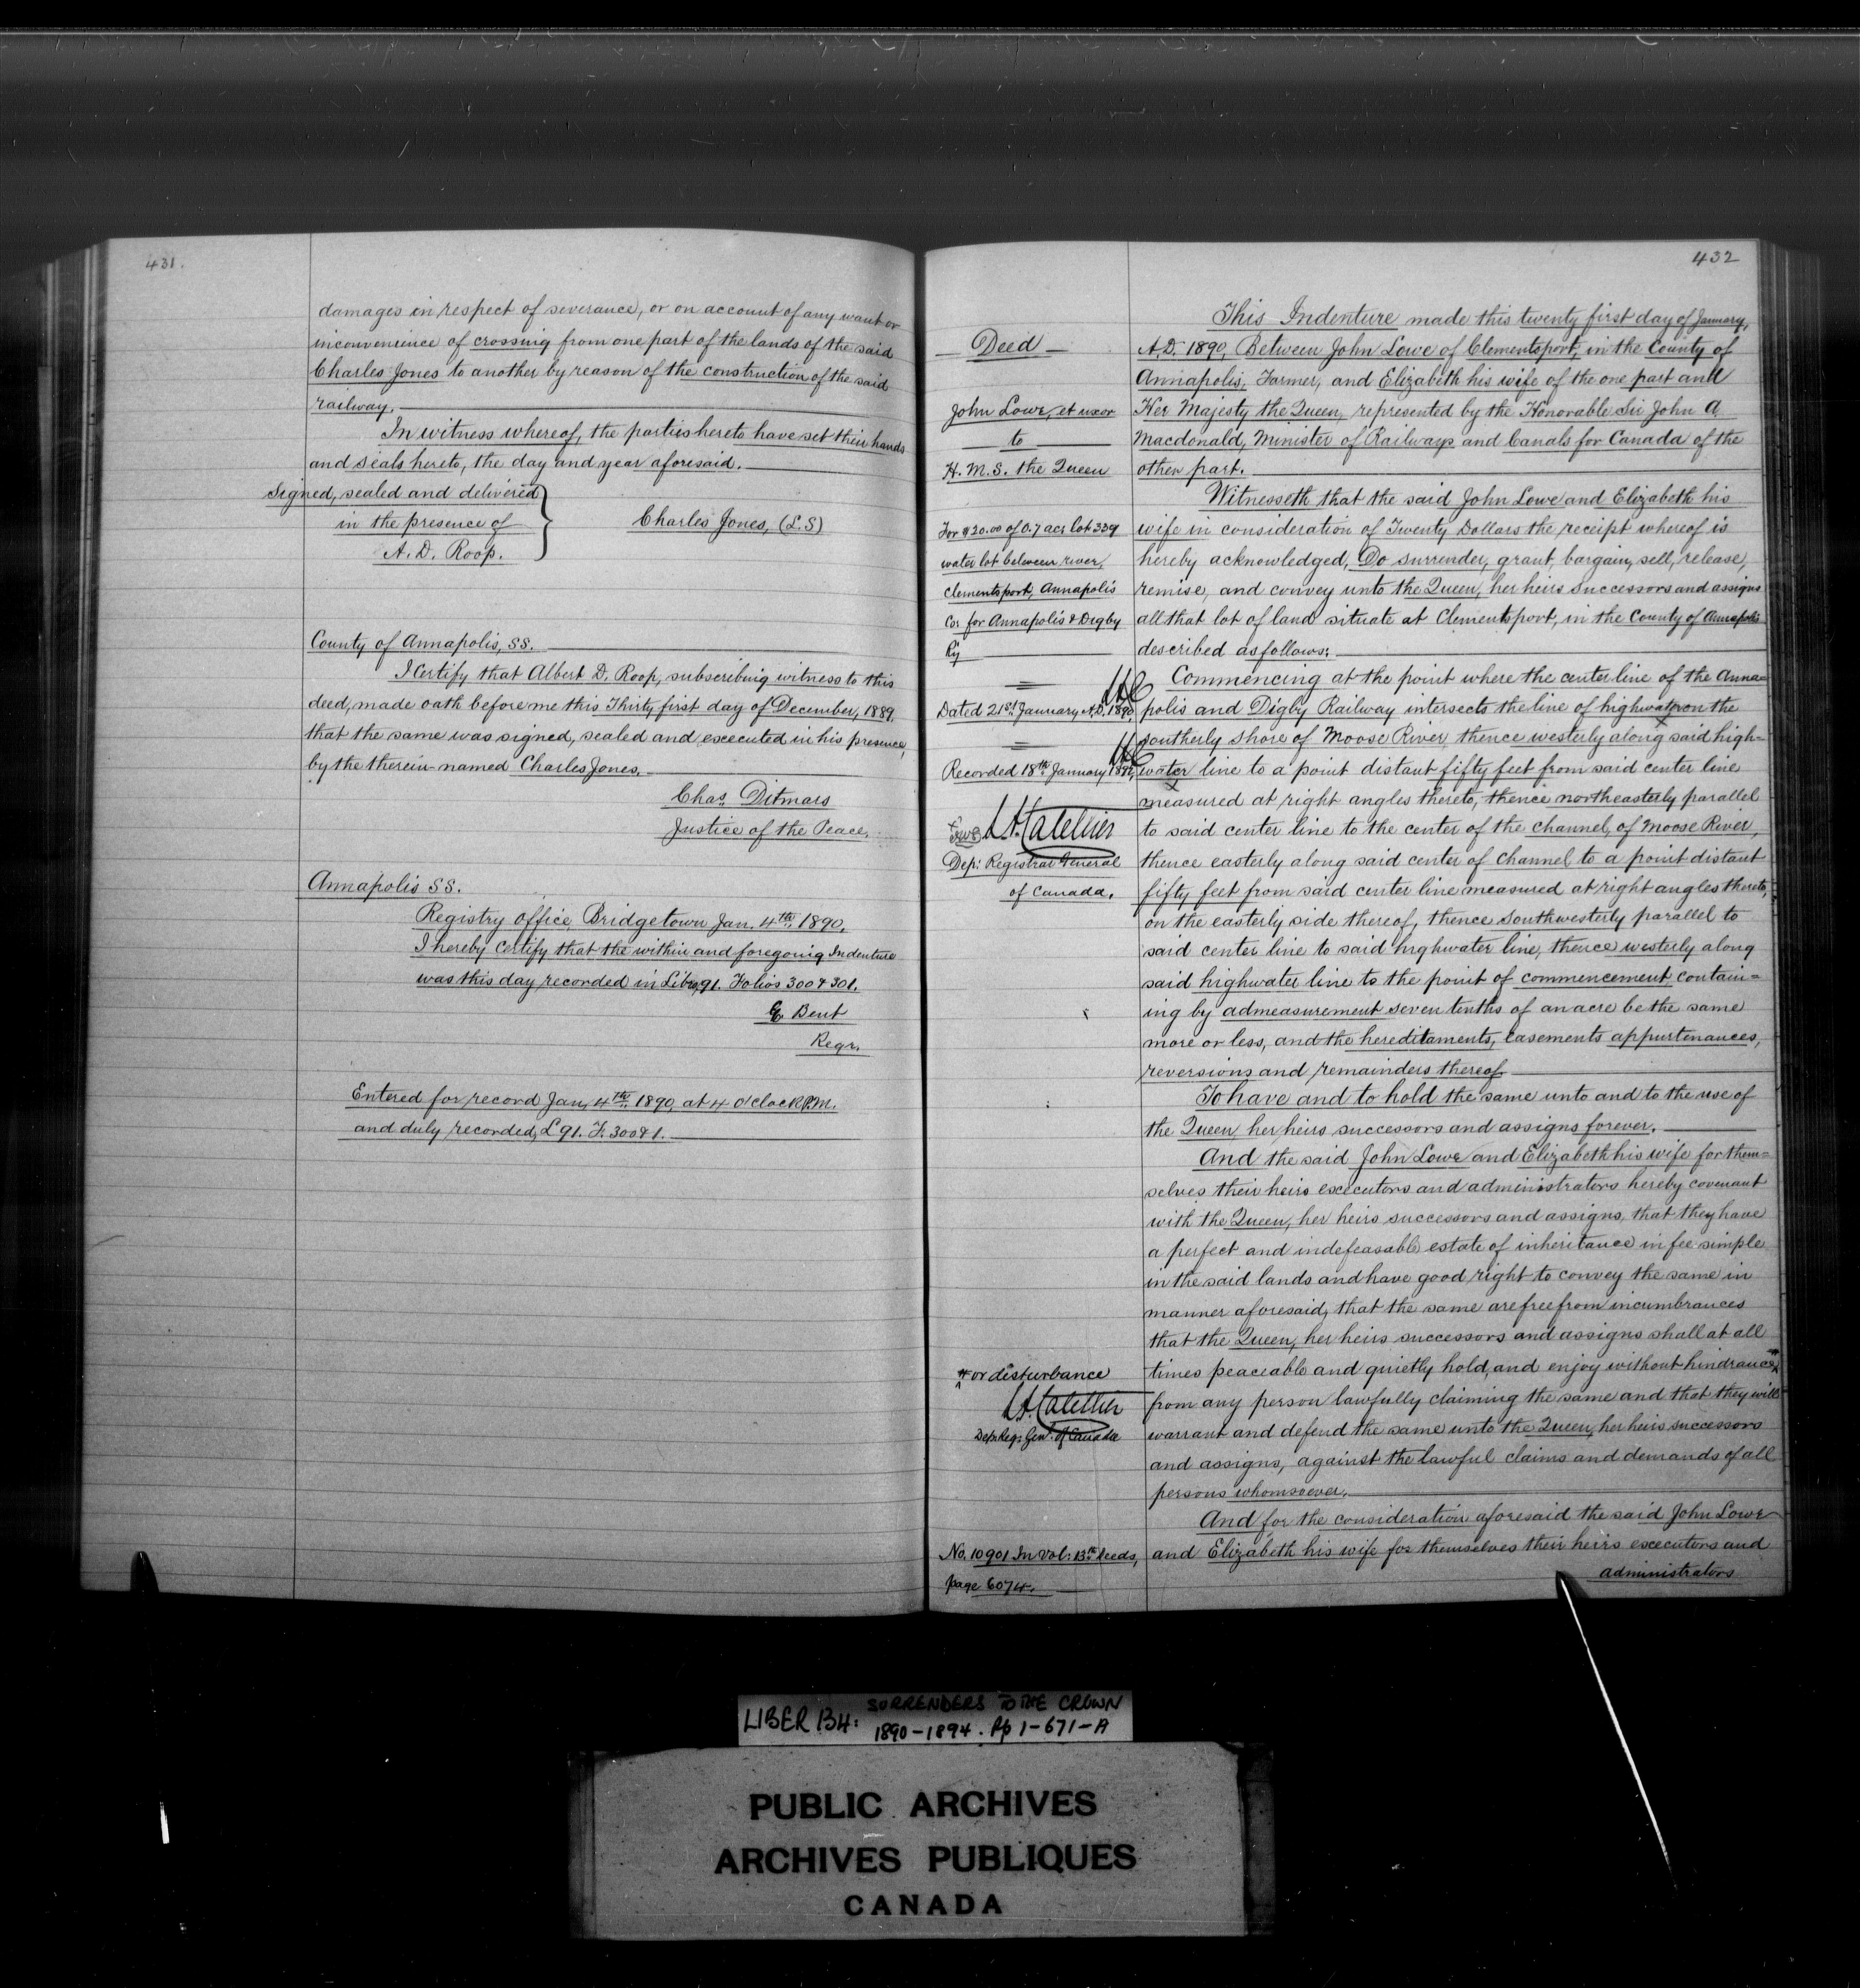 431.
damages in respect of severance, or on account of any want or
inconvenience of crossing from one part of the lands of the said
Charles Jones to another by reason of the construction of the said
railway.
In witness whereof, the parties hereto have set their hands
and seals hereto, the day and year aforesaid.
Signed, sealed and delivered
in the presence of
A. D. Roop.
Charles Jones, (L.S)
County of Annapolis, SS.
I Certify that Albert D. Roop, subscribing witness to this
deed, made oath before me this Thirty first day of December, 1889,
that the same was signed, sealed and excecuted in his presence,
by the therein-named Charles Jones.
Chas. Ditmars
Justice of the Peace.
Annapolis SS.
Registry office, Bridgetown Jan. 4th 1890.
I hereby certify that the within and foregoing Indenture
was this day recorded in Liber 91. Folios 300 & 301.
E. Bent
Regr.
Entered for record Jan. 4th 1890, at 4 O'Clock P.M.
and duly recorded, L 91. F. 300 & 1.
432
Deed
John Lowe, et uxor
to
H. M. S. the Queen
For $20.00 of 0.7 acs lot 339
water lot between river,
Clementsport, Annapolis
Co: for Annapolis & Digby
Ry
Dated 21st January A.D. 1890,
Recorded 18th January 1892,
Dep: Registrar General
of Canada.
or disturbance
Dep. Reg: Genl. of Canada
No. 10901 In Vol: 13th deeds,
page 6074.
This Indenture made this twenty first day of January,
A.D. 1890, Between John Lowe of Clementsport, in the County of
Annapolis, Farmer, and Elizabeth his wife of the one part and
Her Majesty the Queen, represented by the Honorable Sir John A
Macdonald, Minister of Railways and Canals for Canada of the
other part.
Witnesseth that the said John Lowe and Elizabeth his
wife in consideration of Twenty Dollars the receipt whereof is
hereby acknowledged, Do surrender, grant, bargain, sell, release,
remise, and convey unto the Queen, her heirs successors and assigns
all that lot of land situate at Clementsport, in the County of Annapolis
described as follows:
Commencing at the point where the center line of the Anna=
polis and Digby Railway intersects the line of highwater on the
southerly shore of Moose River, thence westerly along said high=
water line to a point distant fifty feet from said center line
measured at right angles thereto, thence northeasterly parallel
to said center line to the center of the channel, of Moose River,
thence easterly along said center of channel to a point distant
fifty feet from said center line measured at right angles thereto,
on the easterly side thereof, thence southwesterly parallel to
said center line to said highwater line, thence westerly along
said highwater line to the point of commencement, contain=
ing by admeasurement seven tenths of an acre be the same
more or less, and the hereditaments, easements appurtenances,
reversions and remainders thereof
To have and to hold the same unto and to the use of
the Queen, her heirs successors and assigns forever.
And the said John Lowe and Elizabeth his wife for them=
selves their heirs excecutors and administrators hereby covenant
with the Queen, her heirs successors and assigns, that they have
a perfect and indefeasable estate of inheritance in fee simple
in the said lands and have good right to convey the same in
manner aforesaid, that the same are free from incumbrances
that the Queen, her heirs successors and assigns shall at all
times peaceable and quietly hold, and enjoy without hindrance
from any person lawfully claiming the same and that they will
warrant and defend the same unto the Queen, her heirs successors
and assigns, against the lawful claims and demands of all
persons whomsoever.
And for the consideration aforesaid the said John Lowe
and Elizabeth his wife for themselves their heirs excecutors and
administrators
LIBER 134: SURRENDERS TO THE CROWN
1890-1894. Pp 1-671-A
PUBLIC ARCHIVES
ARCHIVES PUBLIQUES
CANADA